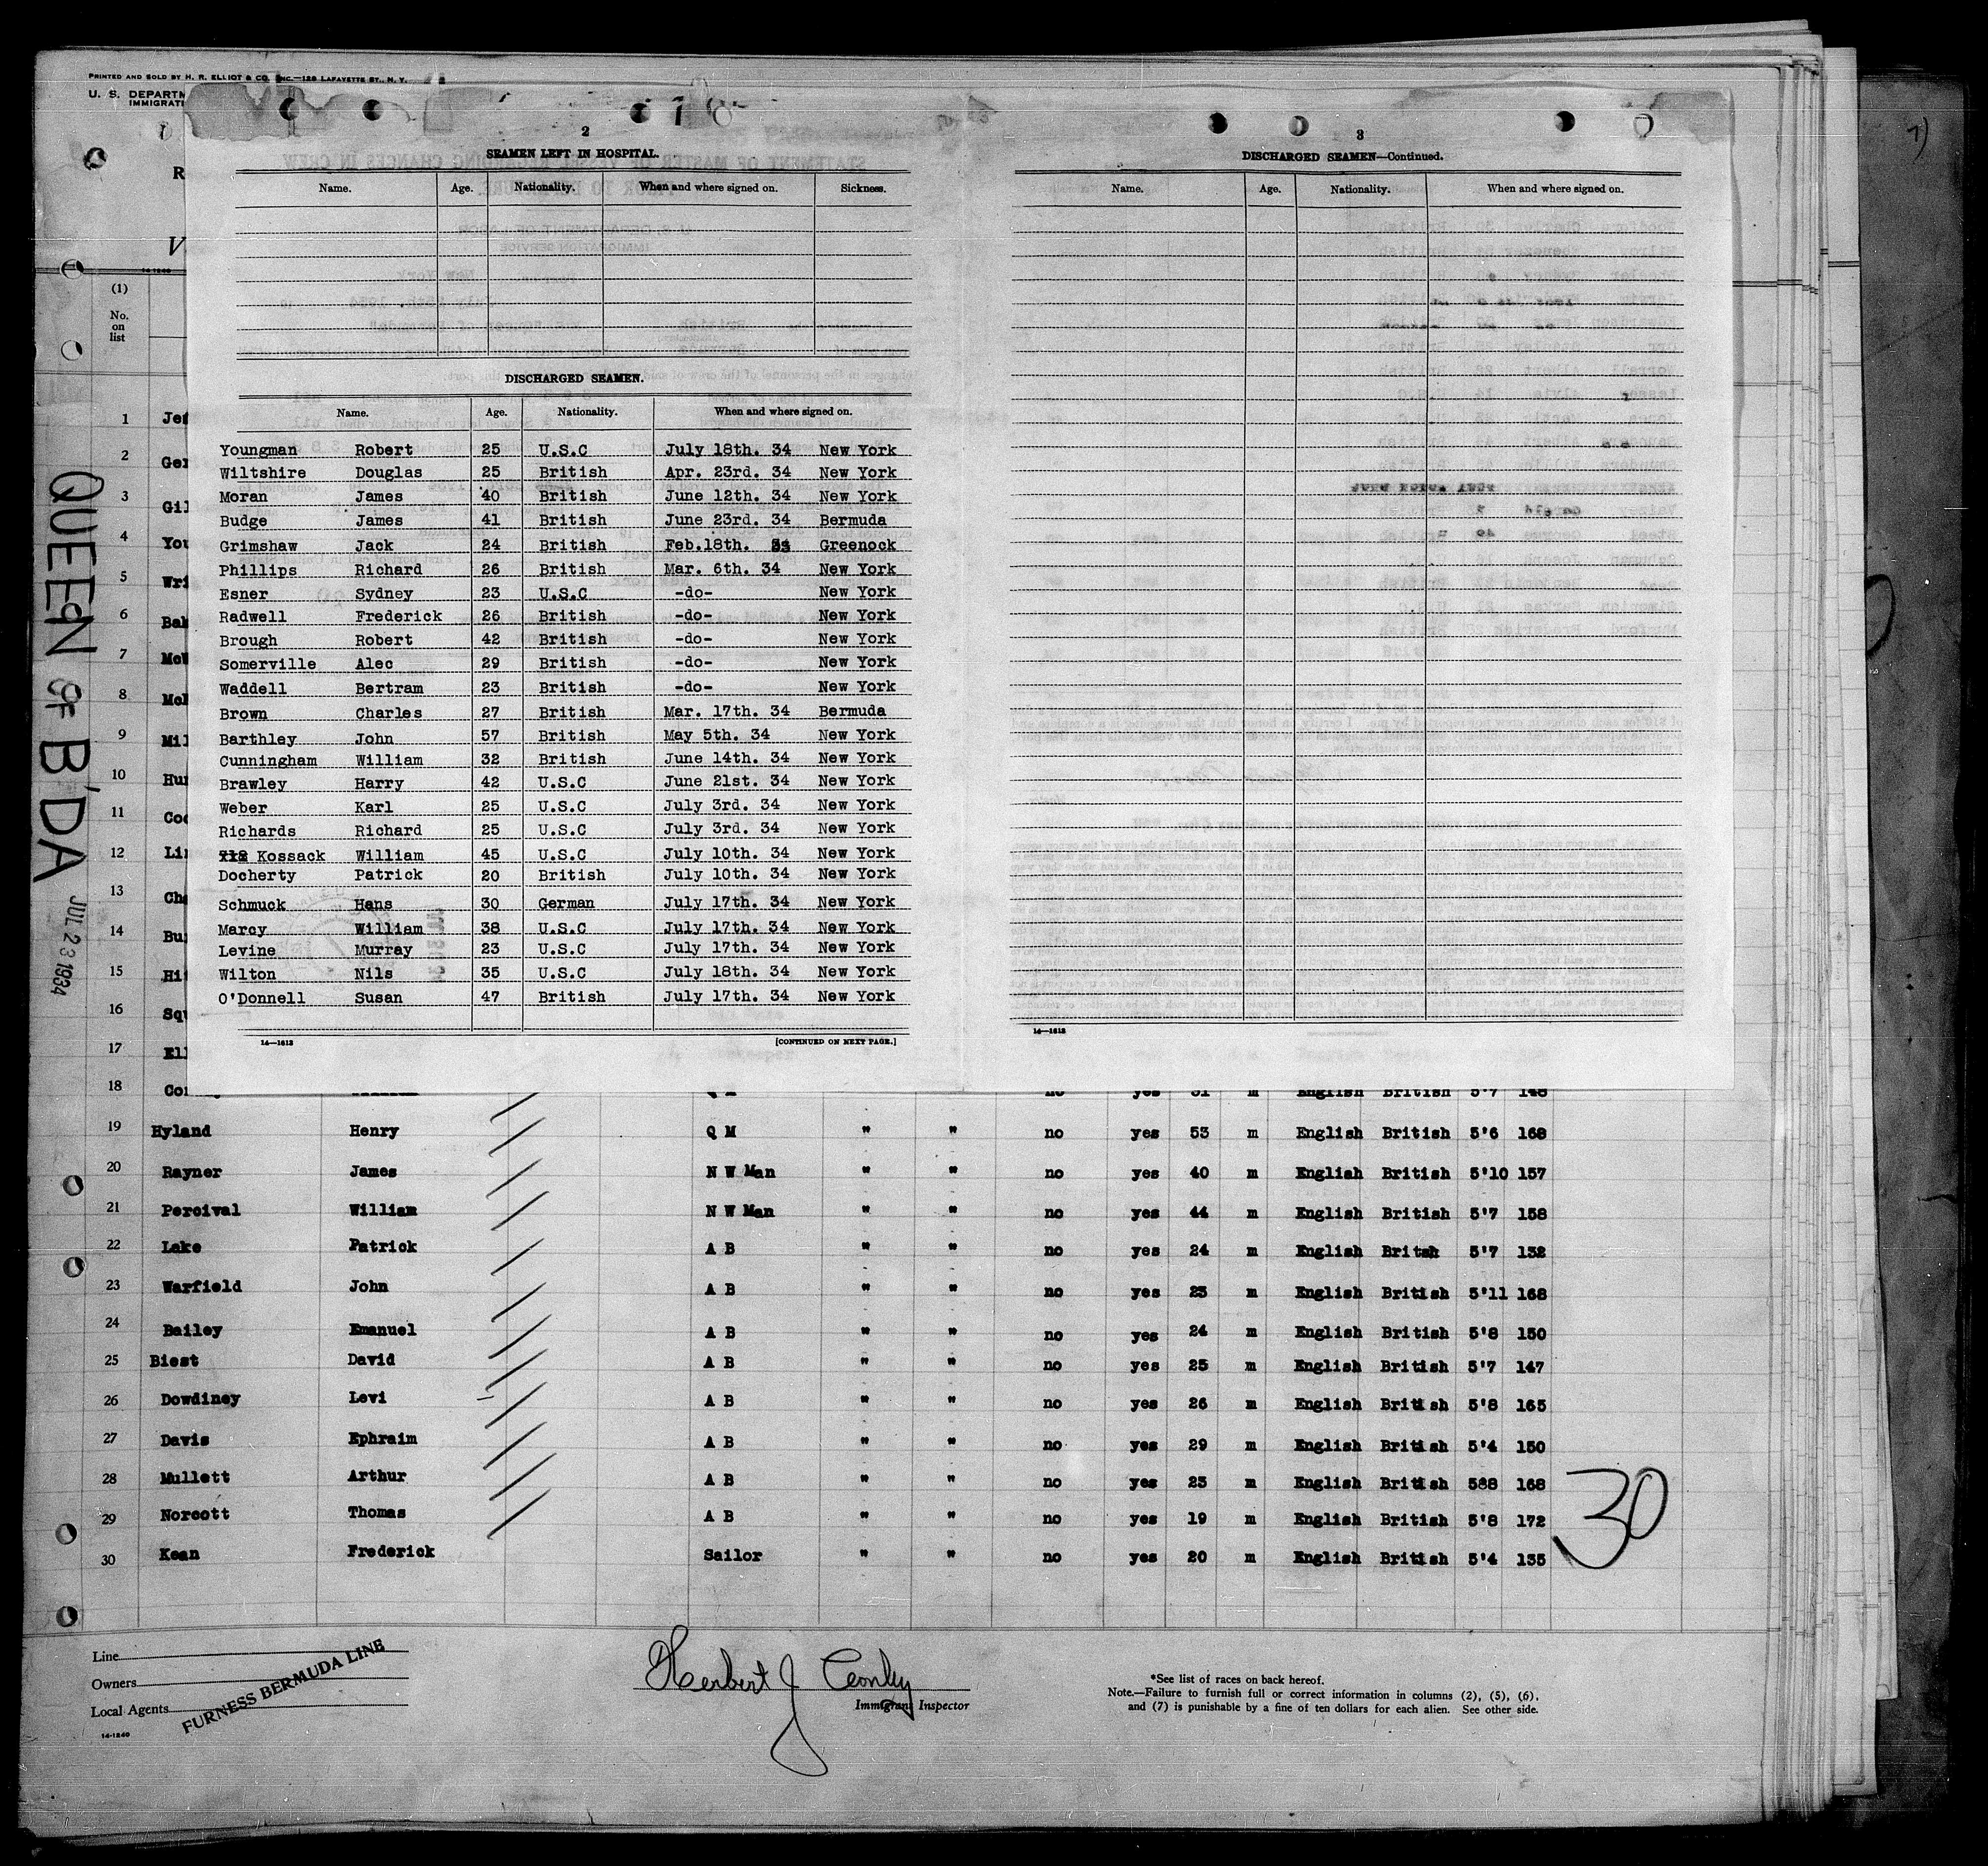 PRINTED AND SOLD BY H. R. ELLIOT & CO. INC.—128 LAFAYETTE ST., N. Y.
U. S. DEPARTM
IMMIGRATI
R
V
14-1240
(1)
No.
on
list
2
SEAMEN LEFT IN HOSPITAL.
Name. Age. Nationality. When and where signed on. Sickness.
DISCHARGED SEAMEN.
Name. Age. Nationality. When and where signed on.
Youngman Robert 25 U.S.C July 18th. 34 New York
Wiltshire Douglas 25 British Apr. 23rd. 34 New York
Moran James 40 British June 12th. 34 New York
Budge James 41 British June 23rd. 34 Bermuda
Grimshaw Jack 24 British Feb.18th. Greenock
Phillips Richard 26 British Mar. 6th. 34 New York
Esner Sydney 23 U.S.C -do- New York
Radwell Frederick 26 British -do- New York
Brough Robert 42 British -do- New York
Somerville Alec 29 British -do- New York
Waddell Bertram 23 British -do- New York
Brown Charles 27 British Mar. 17th. 34 Bermuda
Barthley John 57 British May 5th. 34 New York
Cunningham William 32 British June 14th. 34 New York
Brawley Harry 42 U.S.C June 21st. 34 New York
Weber Karl 25 U.S.C July 3rd. 34 New York
Richards Richard 25 U.S.C July 3rd. 34 New York
Kossack William 45 U.S.C July 10th. 34 New York
Docherty Patrick 20 British July 10th. 34 New York
Schmuck Hans 30 German July 17th. 34 New York
Marcy William 38 U.S.C July 17th. 34 New York
Levine Murray 23 U.S.C July 17th. 34 New York
Wilton Nils 35 U.S.C July 18th. 34 New York
O'Donnell Susan 47 British July 17th. 34 New York
14—1613 [CONTINUED ON NEXT PAGE.]
3
DISCHARGED SEAMEN—Continued.
Name. Age. Nationality. When and where signed on.
14—1613
QUEEN OF B'DA JUL 23 1934
1 Jef
2 Ger
3 Gil
4 You
5 Wri
6 Bak
7 McW
8
9 Mil
10 Hun
11 Coo
12 Lin
13 Cha
14 Bu
15 Hi
16 Squ
17 Ell
18 yes 31 m English British 5'7 148
19 Hyland Henry Q M " " no yes 53 m English British 5'6 168
20 Rayner James N W Man " " no yes 40 m English British 5'10 157
21 Percival William N W Man " " no yes 44 m English British 5'7 158
22 Lake Patrick A B " " no yes 24 m English Britsh 5'7 132
23 Warfield John A B " " no yes 23 m English British 5'11 168
24 Bailey Emanuel A B " " no yes 24 m English British 5'8 150
25 Biest David A B " " no yes 25 m English British 5'7 147
26 Dowdiney Levi A B " " no yes 26 m English British 5'8 165
27 Davis Ephraim A B " " no yes 29 m English British 5'4 150
28 Mullett Arthur A B " " no yes 23 m English British 588 168
29 Norcott Thomas A B " " no yes 19 m English British 5'8 172
30 Kean Frederick Sailor " " no yes 20 m English British 5'4 135
30
Line
Owners
Local Agents
FURNESS BERMUDA LINE
14-1240
Herbert J Conley
Immigrant Inspector
*See list of races on back hereof.
Note.—Failure to furnish full or correct information in columns (2), (5), (6),
and (7) is punishable by a fine of ten dollars for each alien. See other side.